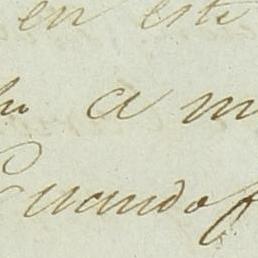 en este
a m
Cuando